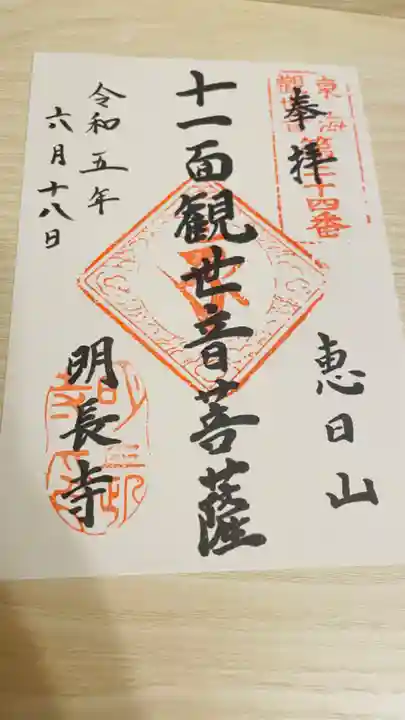 奉拝
東海
観世音
第三十四番
恵日山
十一面観世音菩薩
明長寺
令和五年
六月十八日